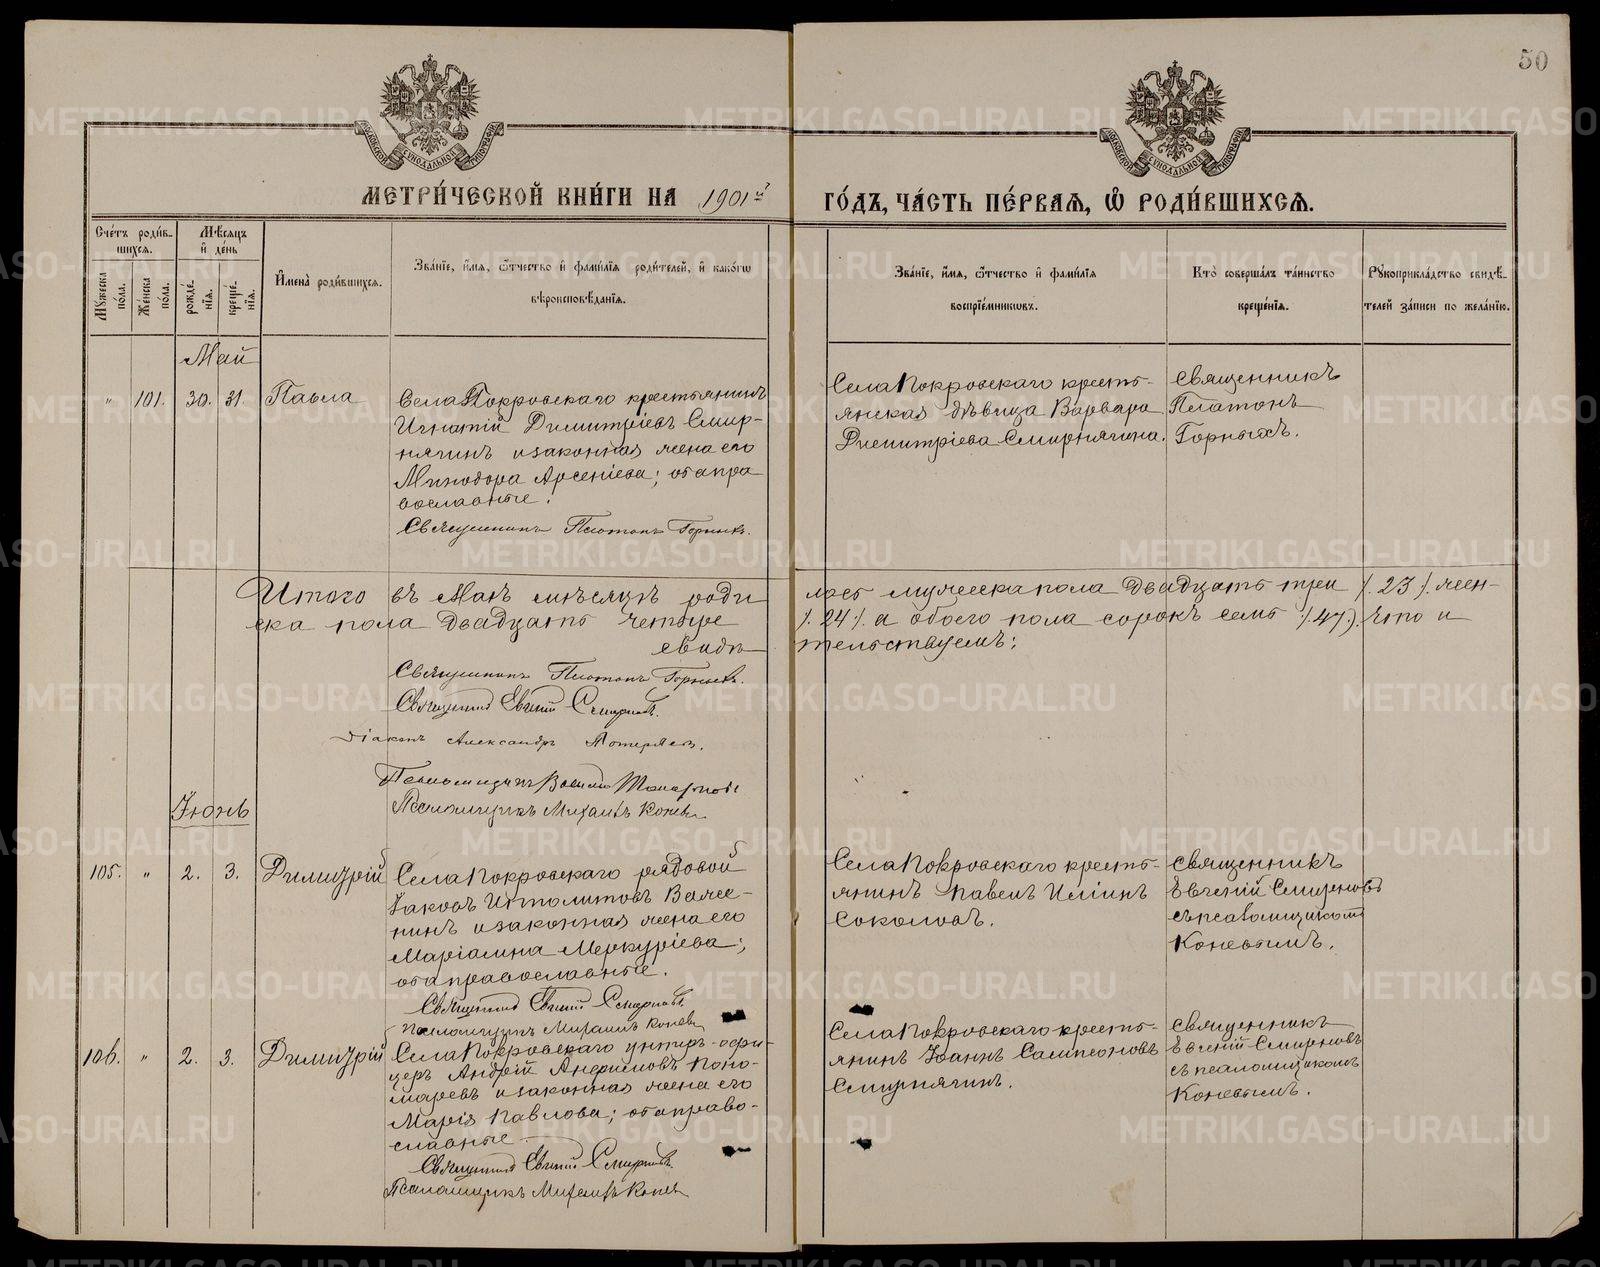 50
МОСКОВСКОЙ СѴНОДАЛЬНОЙ ТИПОГРАФІИ
МОСКОВСКОЙ СѴНОДАЛЬНОЙ ТИПОГРАФІИ
МЕТРИ́ЧЕСКОЙ КНИ́ГИ НА 1901й
ГО́ДЪ, ЧА́СТЬ ПЕ́РВАѦ, Ѡ҆ РОДИ́ВШИХСѦ.
Сче́тъ роди́в-
шихсѧ.
Мѣ́сѧцъ
и҆ де́нь
Мꙋ́жеска
по́ла.
Же́нска
по́ла.
рожде́-
нїѧ.
креще́-
нїѧ.
И҆мена̀ роди́вшихсѧ.
Зва́нїе, и҆́мѧ, ѻ҆́тчество и҆ фами́лїѧ роди́телей, и҆ како́гѡ
вѣроисповѣ́данїѧ.
Зва́нїе, и҆́мѧ, ѻ҆́тчество и҆ фами́лїѧ
воспрїе́мникѡвъ.
Кто̀ соверша́лъ та́инство
креще́нїѧ.
Рꙋкоприкла́дство свидѣ́-
телей за́писи по жела́нїю.
Май
" 101. 30. 31. Павла
Села Покровскаго крестьянинъ
Игнатій Димитріевъ Смир-
нягинъ и законная жена его
Минодора Арсеніева; оба пра
вославные.
Священникъ Платонъ Горныхъ.
Села Покровскаго кресть-
янская дѣвица Варвара
Димитріева Смирнягина.
Священникъ
Платонъ
Горныхъ.
Итого въ Маѣ мѣсяцѣ роди
лось мужеска пола двадцать три /. 23 ./ жен-
ска пола двадцать четыре
/. 24 ./. а обоего пола сорокъ семь /. 47.). Что и
свидѣ
тельствуемъ:
Священникъ Платонъ Горныхъ.
Священникъ Евгеній Смирновъ.
Діаконъ Александръ
Псаломщикъ Василій
Псаломщикъ Михаилъ Коневъ
Іюнь
105. " 2. 3. Димитрій
Села Покровскаго рядовой
Іаковъ Ипполитовъ
нинъ и законная жена его
Маріамна Меркуріева;
оба православные.
Священникъ Евгеній Смирновъ.
Псаломщикъ Михаилъ Коневъ
Села Покровскаго кресть-
янинъ Павелъ Иліинъ
Соколовъ.
Священникъ
Евгеній Смирновъ
съ псаломщикомъ
Коневымъ.
106. " 2. 3. Димитрій
Села Покровскаго унтеръ-офи-
церъ Андрій Анфимовъ Поно-
маревъ и законная жена его
Марія Павлова; оба право-
славные.
Священникъ Евгеній Смирновъ.
Псаломщикъ Михаилъ Коневъ
Села Покровскаго кресть-
янинъ Іоаннъ Сампсоновъ
Смирнягинъ.
Священникъ
Евгеній Смирновъ
съ псаломщикомъ
Коневымъ.
METRIKI.GASO-URAL.RU